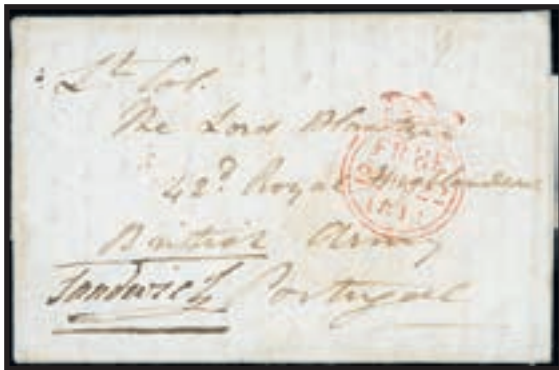 Lt. Col.
The Lord Blantyre
42d Royal Highlanders
British Army
Sandwich Portugal
FREE